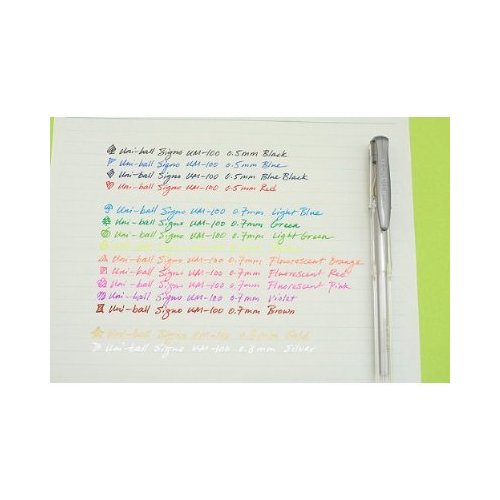 uni-ball Signo UM-100 0.5mm Black
uni-ball Signo UM-100 0.5mm Blue
uni-ball Signo UM-100 0.5mm Blue Black
uni-ball Signo UM-100 0.5mm Red
uni-ball Signo UM-100 0.7mm Light Blue
uni-ball Signo UM-100 0.7mm Green
uni-ball Signo UM-100 0.7mm Light Green
uni-ball Signo UM-100 0.7mm Fluorescent Orange
uni-ball Signo UM-100 0.7mm Fluorescent Red
uni-ball Signo UM-100 0.7mm Fluorescent Pink
uni-ball Signo UM-100 0.7mm Violet
uni-ball Signo UM-100 0.7mm Brown
uni-ball Signo UM-100 0.8mm Gold
uni-ball Signo UM-100 0.8mm Silver